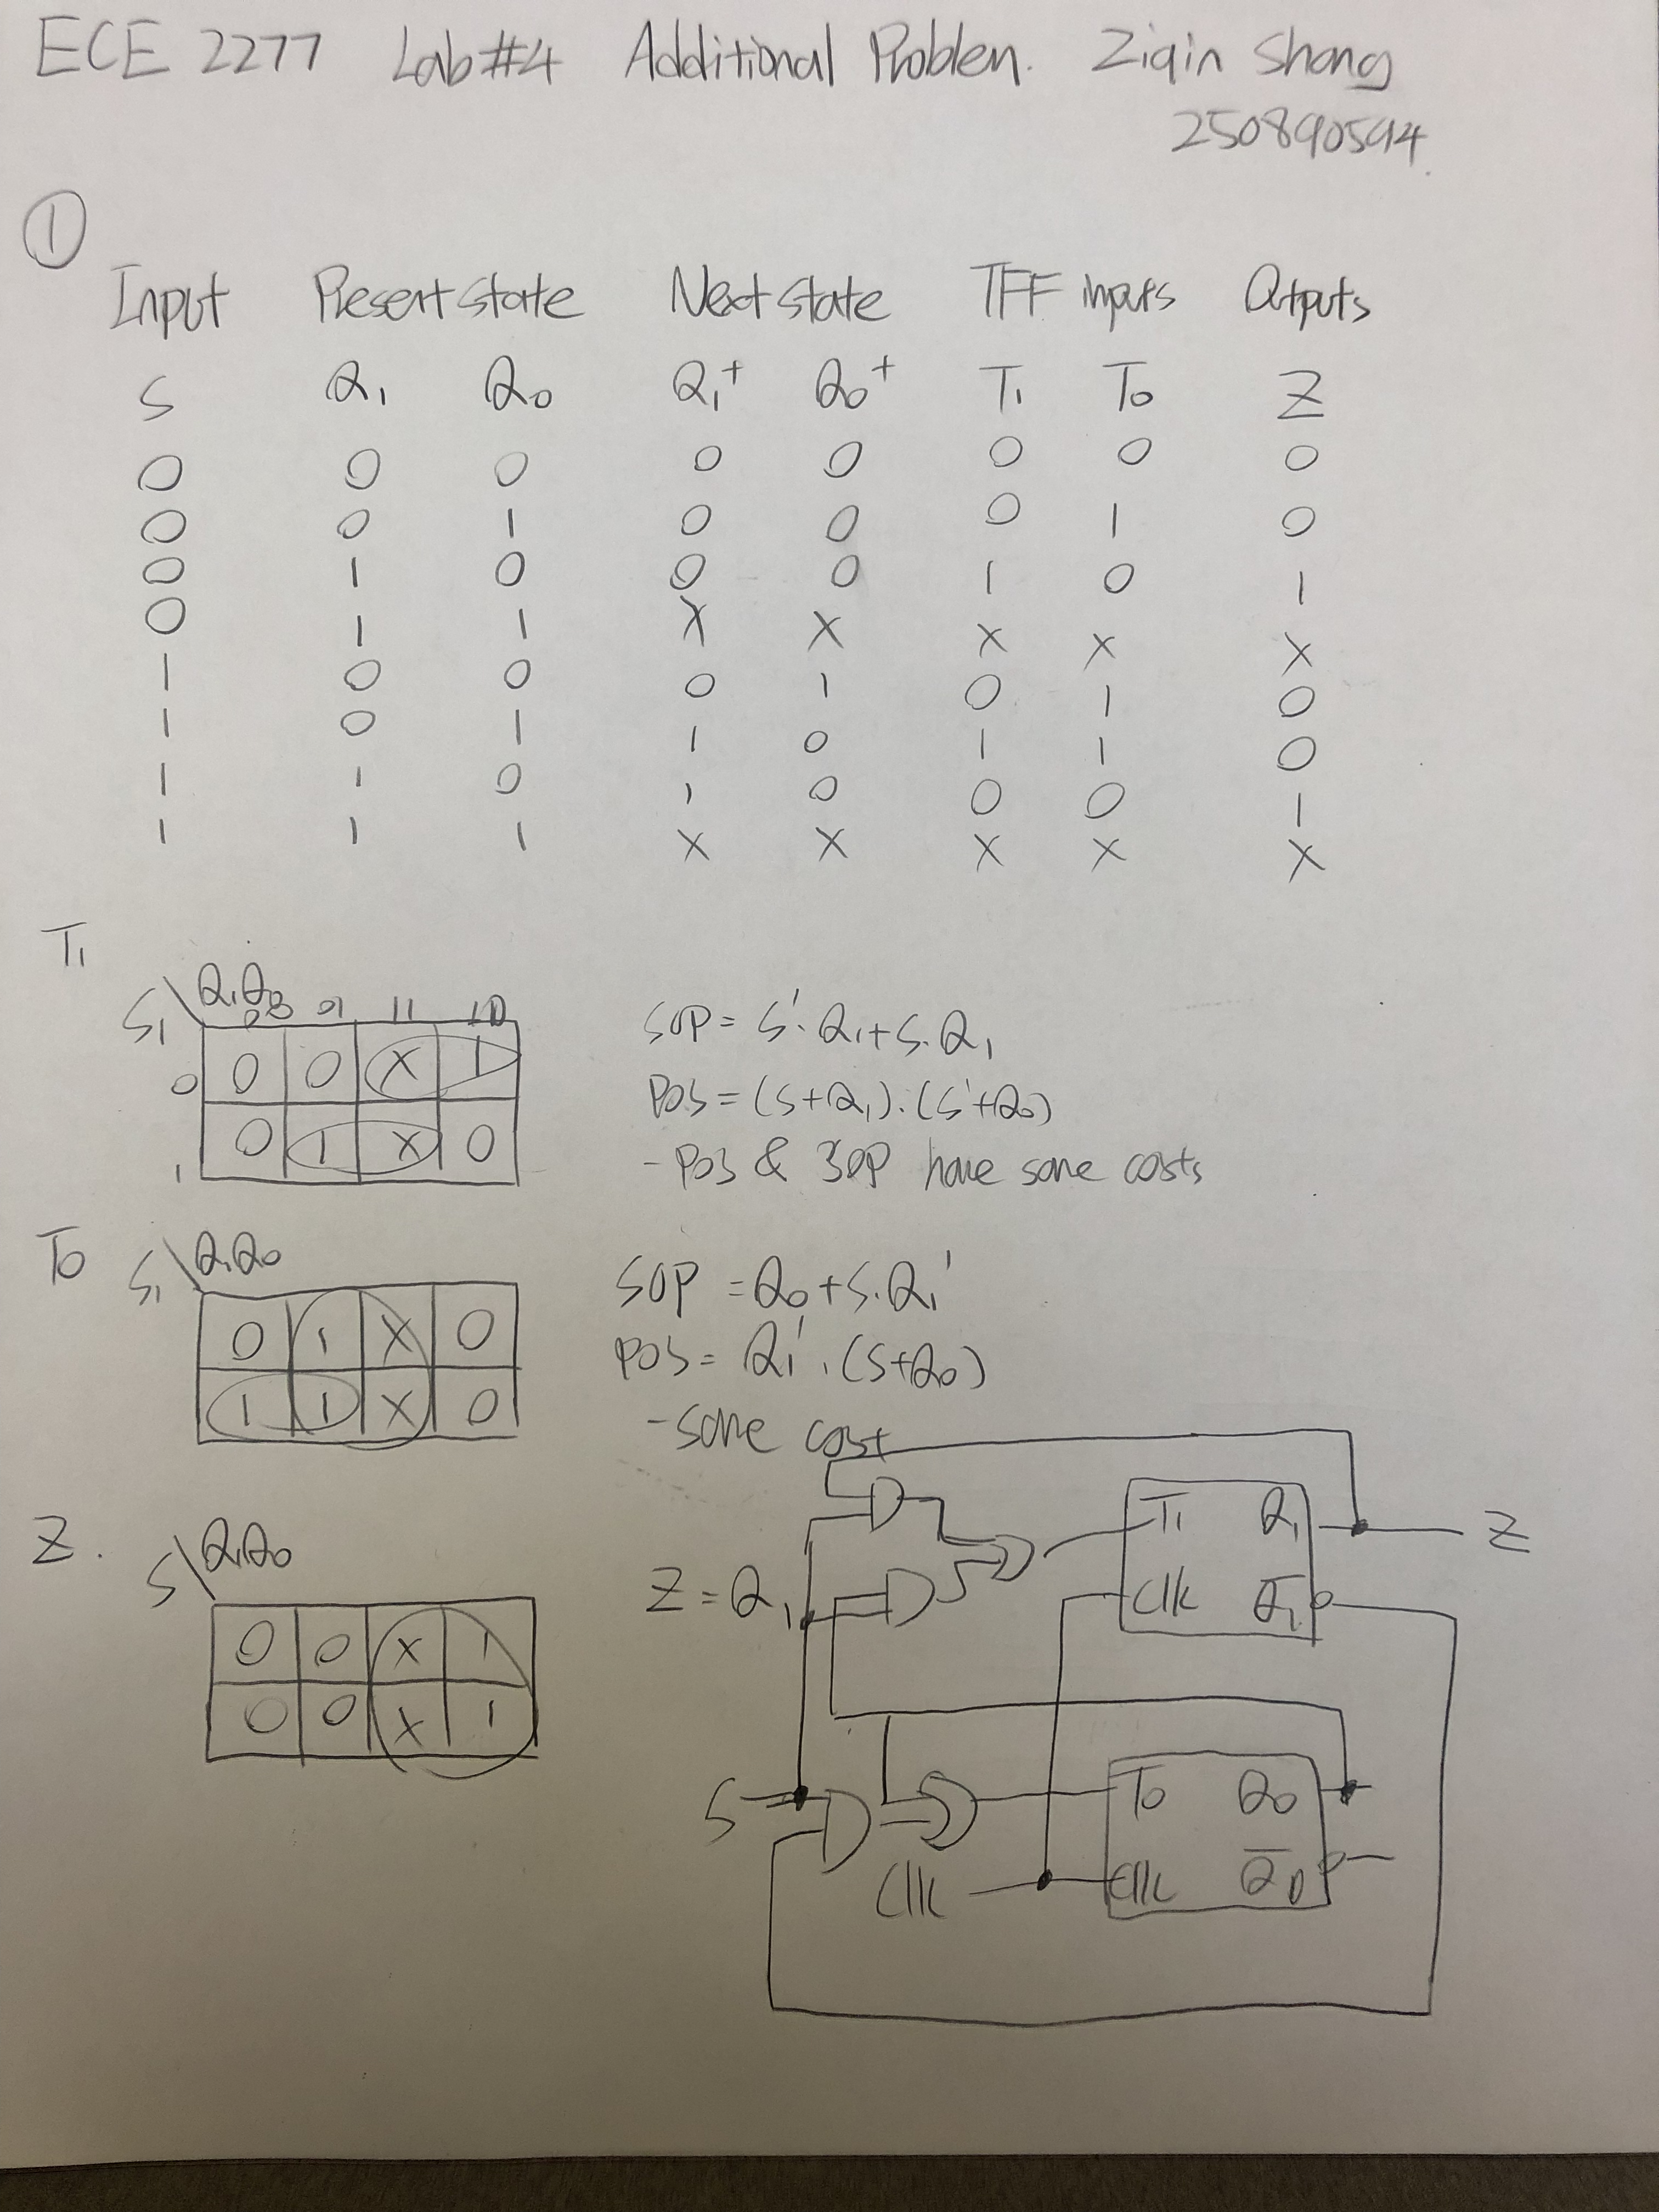 ECE 2277 Lab#4 Additional Problem. Ziqin Shang
250890594
①
Input Present state Next state TFF inputs Outputs
S Q₁ Q₀ Q₁⁺ Q₀⁺ T₁ T₀ Z
0 0 0 0 0 0 0 0
0 0 1 0 0 0 1 0
0 1 0 0 0 1 0 1
0 1 1 X X X X X
1 0 0 0 1 0 1 0
1 0 1 1 0 1 1 0
1 1 0 1 0 0 0 1
1 1 1 X X X X X
T₁
S₁\Q₁Q₀ 00 01 11 10
0 0 0 X 1
1 0 1 X 0
SOP = S'·Q₁+S·Q₁
POS = (S+Q₁)·(S'+Q₀)
- POS & SOP have same costs
T₀ S₁\Q₁Q₀
0 1 X 0
1 1 X 0
SOP = Q₀+S·Q₁'
POS = Q₁'·(S+Q₀)
- same cost
Z. S\Q₁Q₀
0 0 X 1
0 0 X 1
Z = Q₁
T₁ Q₁ Z
Clk Q̅₁
S T₀ Q₀
Clk Clk Q̅₀